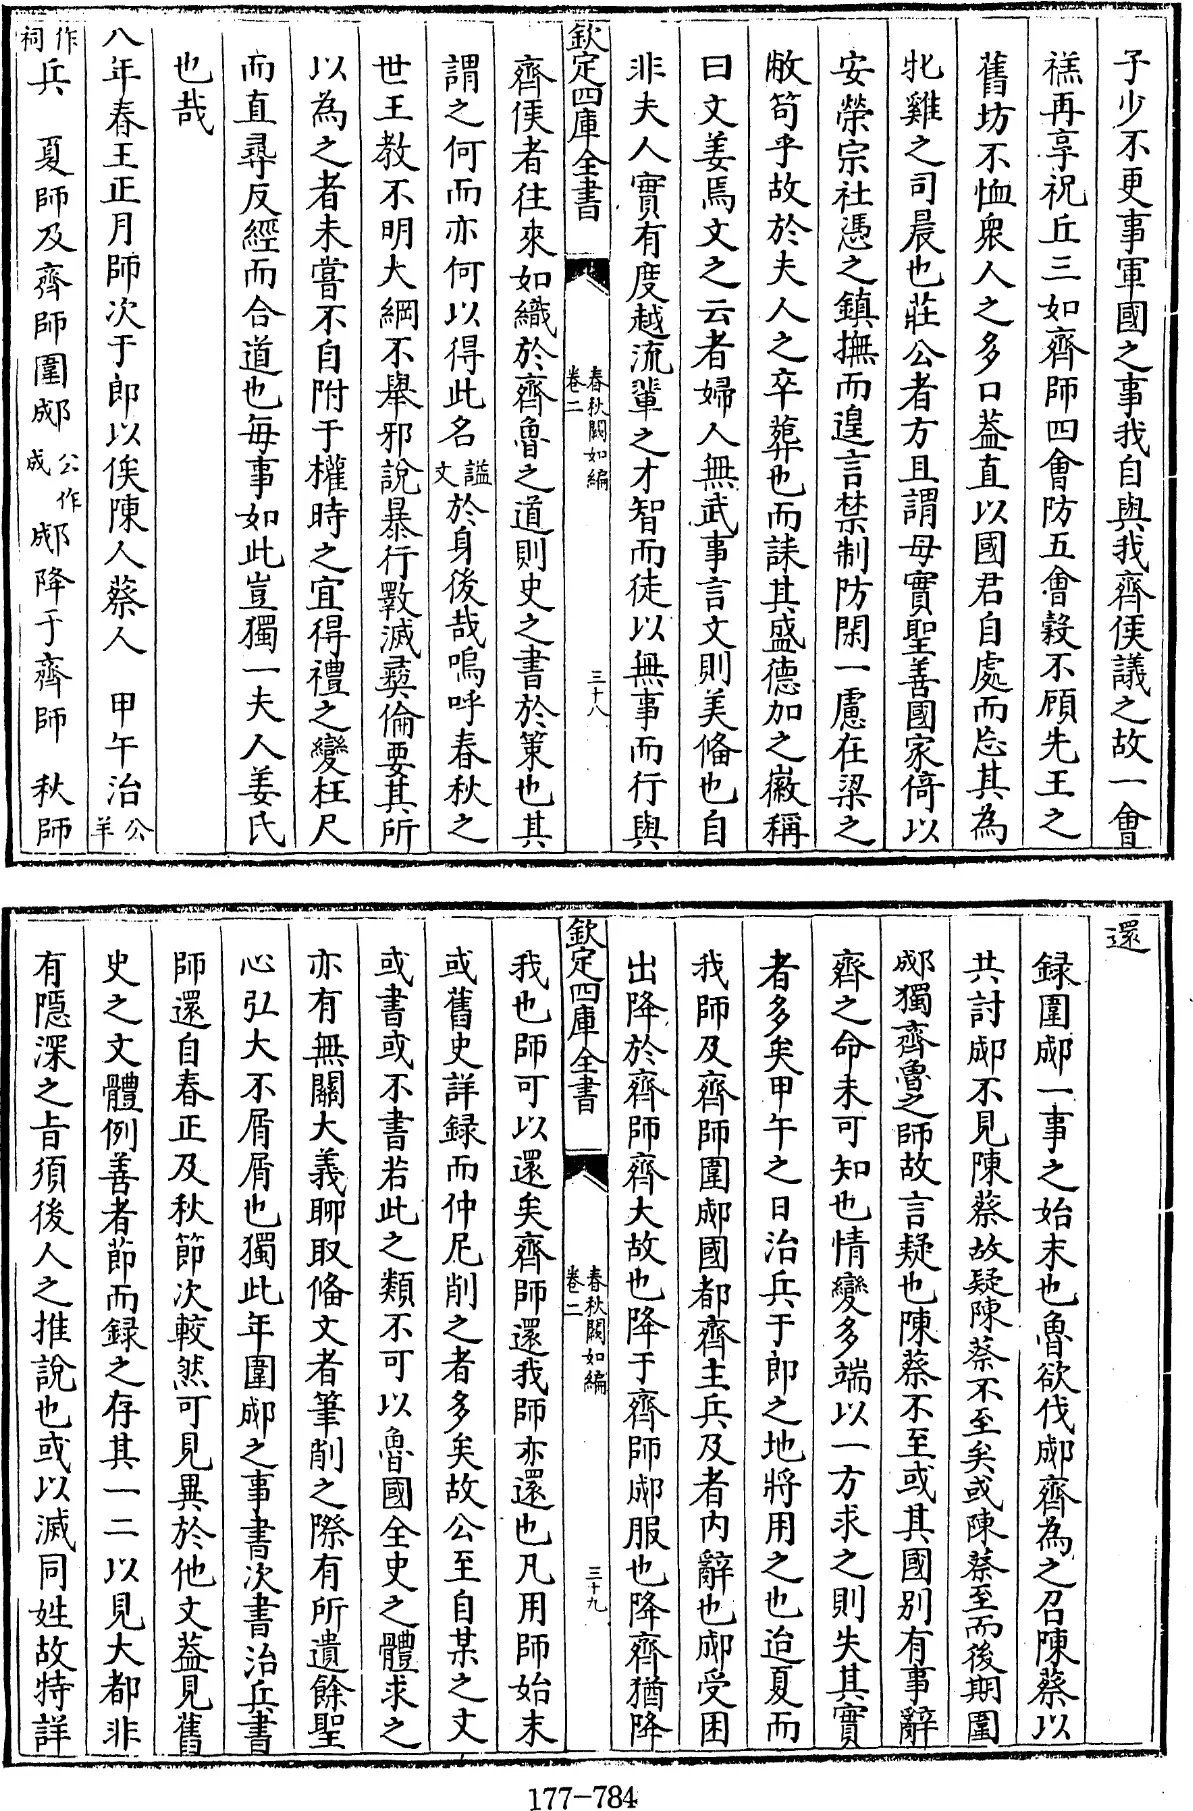 子少不更事軍國之事我自與我齊侯議之故一會
禚再享祝丘三如齊師四會防五會穀不顧先王之
舊坊不恤衆人之多口葢直以國君自處而忘其為
牝雞之司晨也莊公者方且謂母實聖善國家倚以
安榮宗社憑之鎮撫而遑言禁制防閑一慮在梁之
敝笱乎故於夫人之卒葬也而誄其盛德加之徽稱
曰文姜焉文之云者婦人無武事言文則美備也自
非夫人實有度越流輩之才智而徒以無事而行與
欽定四庫全書
春秋闕如編
卷二
三十八
齊侯者往來如織於齊魯之道則史之書於策也其
謂之何而亦何以得此名謚文於身後哉嗚呼春秋之
世王教不明大綱不舉邪說暴行斁滅彛倫要其所
以為之者未嘗不自附于權時之宜得禮之變枉尺
而直尋反經而合道也每事如此豈獨一夫人姜氏
也哉
八年春王正月師次于郎以俟陳人蔡人　甲午治公羊
作祠兵　夏師及齊師圍郕公作成　郕降于齊師　秋師
還
録圍郕一事之始末也魯欲伐郕齊為之召陳蔡以
共討郕不見陳蔡故疑陳蔡不至矣或陳蔡至而後期圍
郕獨齊魯之師故言疑也陳蔡不至或其國别有事辭
齊之命未可知也情變多端以一方求之則失其實
者多矣甲午之日治兵于郎之地將用之也迨夏而
我師及齊師圍郕國都齊主兵及者内辭也郕受困
出降於齊師齊大故也降于齊師郕服也降齊猶降
欽定四庫全書
春秋闕如編
卷二
三十九
我也師可以還矣齊師還我師亦還也凡用師始末
或舊史詳録而仲尼削之者多矣故公至自某之文
或書或不書若此之類不可以魯國全史之體求之
亦有無關大義聊取備文者筆削之際有所遺餘聖
心弘大不屑屑也獨此年圍郕之事書次書治兵書
師還自春正及秋節次較然可見異於他文葢見舊
史之文體例善者節而録之存其一二以見大都非
有隱深之旨須後人之推說也或以滅同姓故特詳
177-784